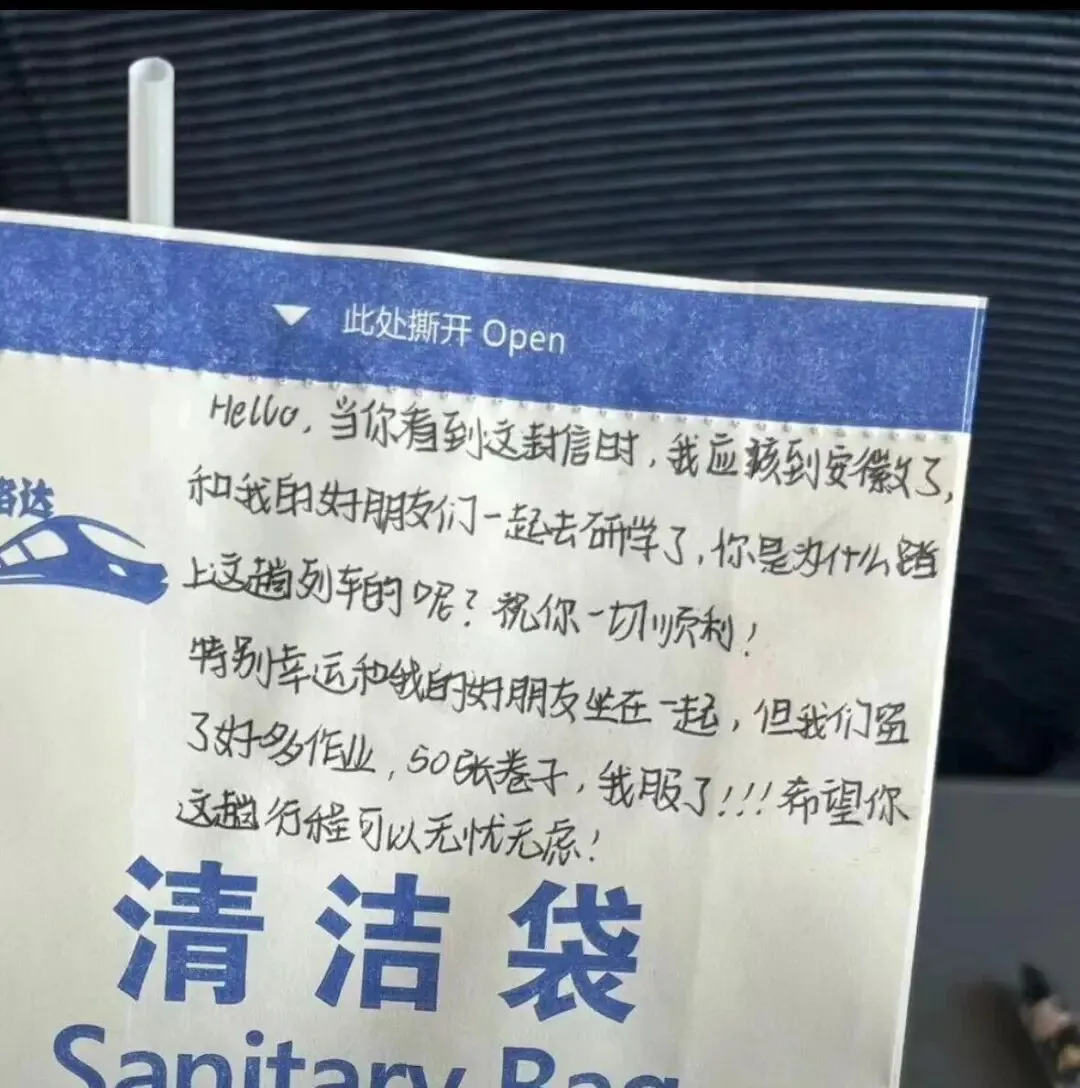 此处撕开 Open
Hello,当你看到这封信时,我应该到安徽了,
和我的好朋友们一起去研学了,你是为什么踏
上这趟列车的呢?祝你一切顺利!
特别幸运和我的好朋友坐在一起,但我们留
了好多作业,50张卷子,我服了!!!希望你
这趟行程可以无忧无虑!
达
清洁袋
Sanitary Bag